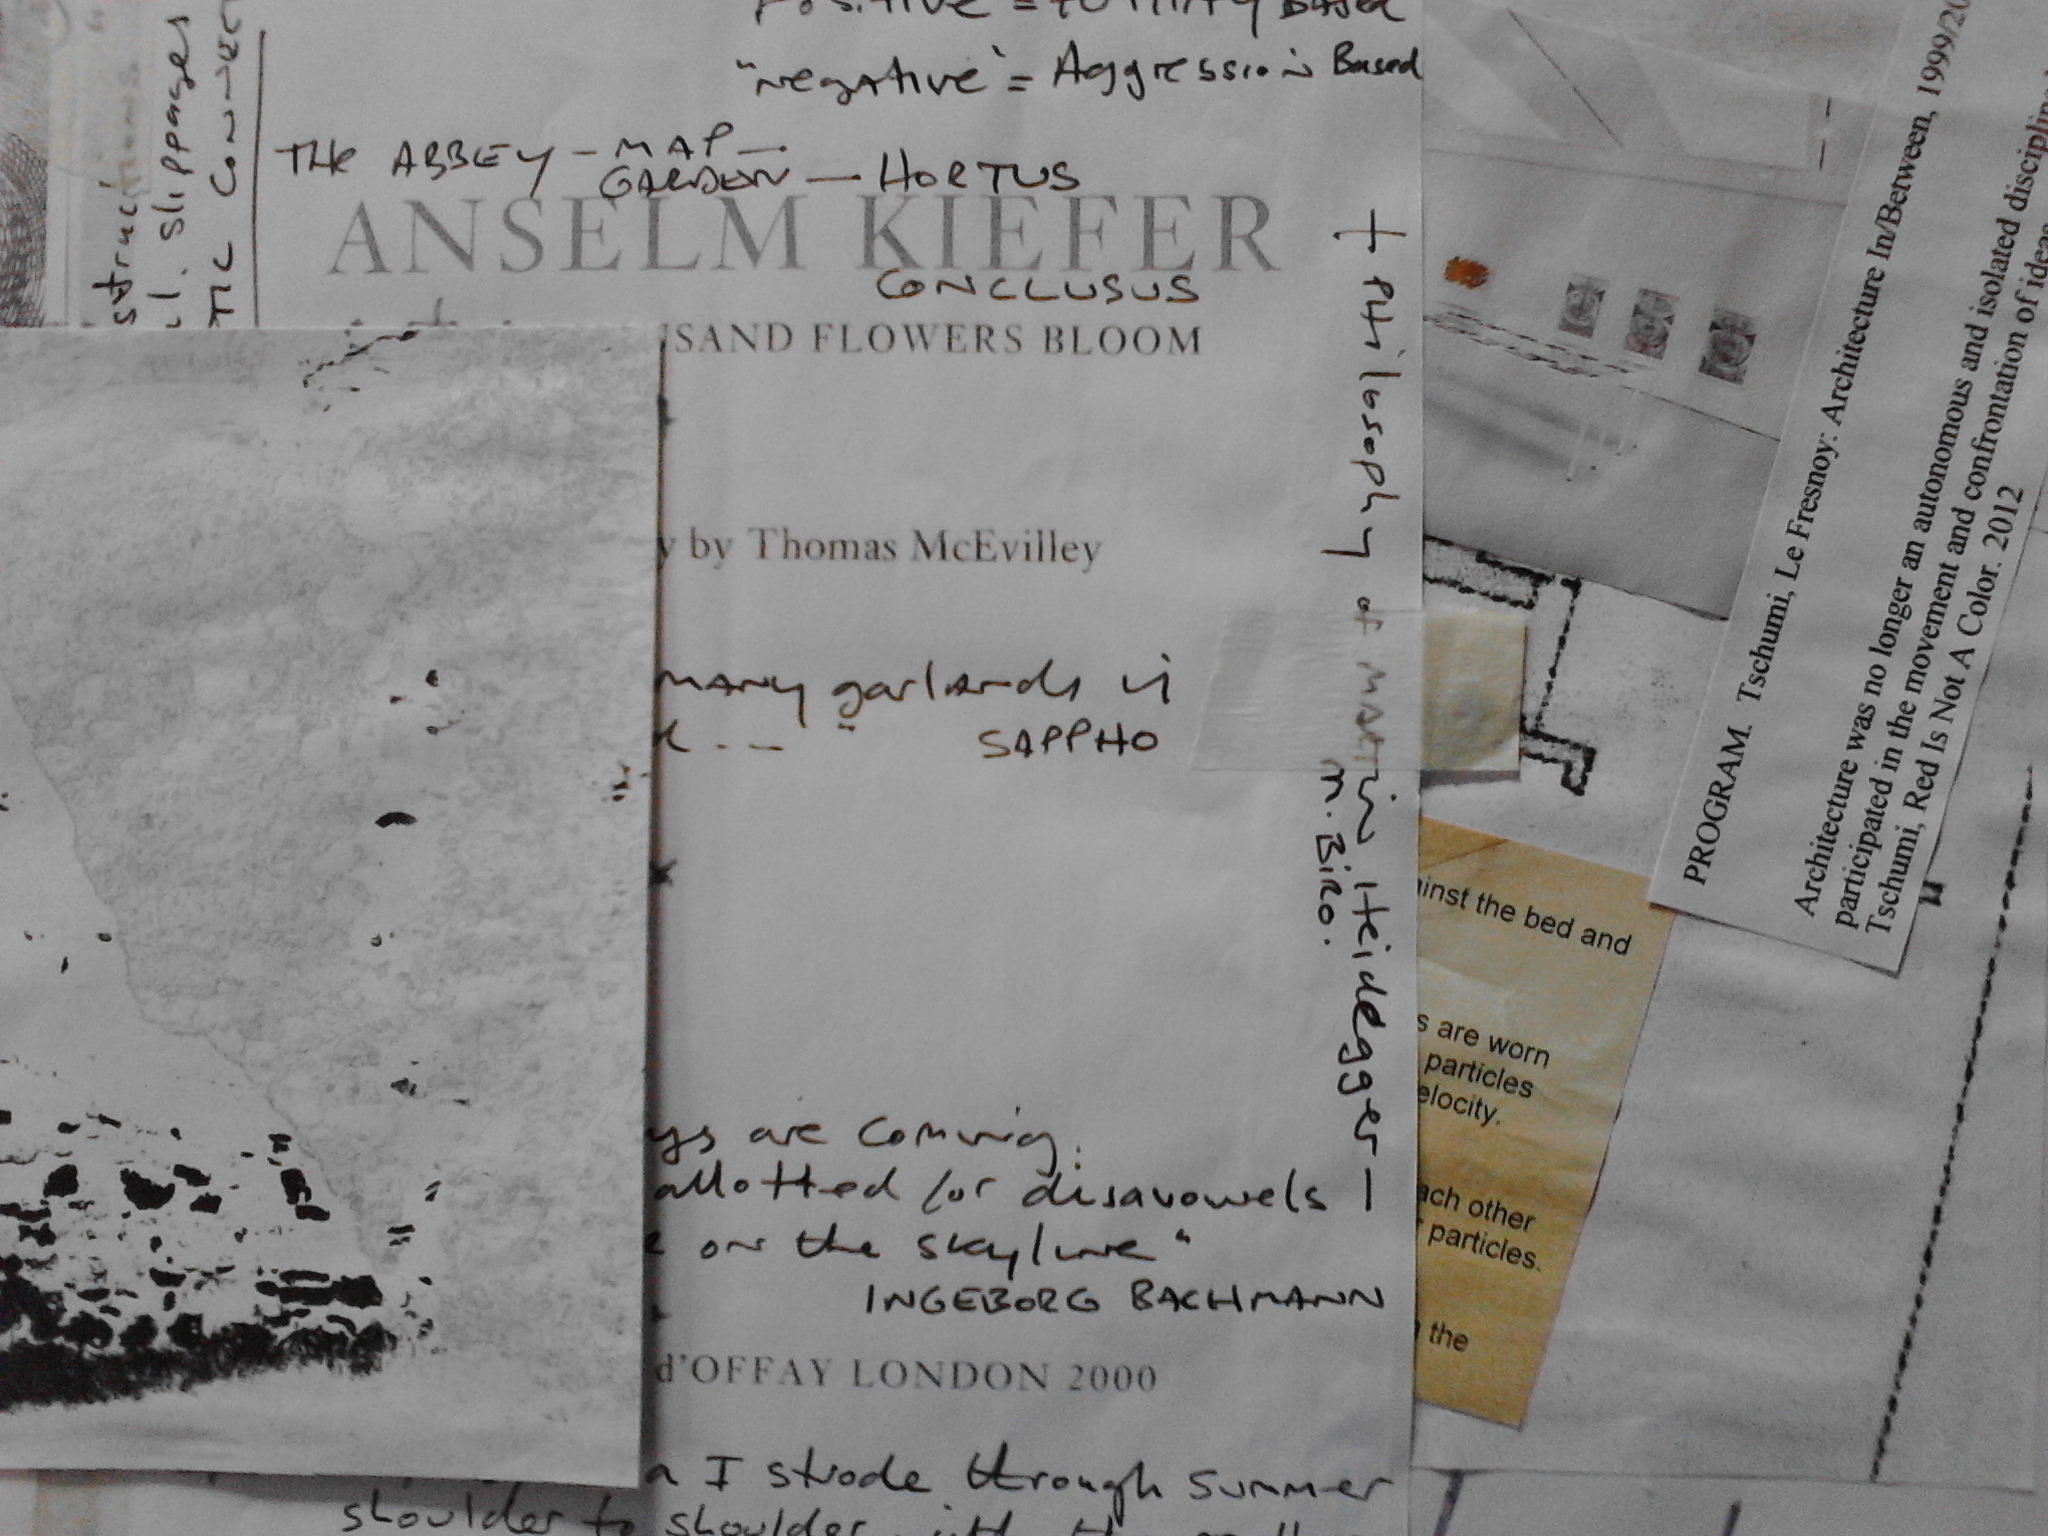 "negative" = Aggression Based
THE ABBEY - MAP -
GARDEN - HORTUS
ANSELM KIEFER
CONCLUSUS
USAND FLOWERS BLOOM
y by Thomas McEvilley
many garlands
SAPPHO
ys are coming.
allotted for disavowels
e on the skyline"
INGEBORG BACHMANN
d'OFFAY LONDON 2000
I strode through summer
shoulder to shoulder
+ Philosophy of Martin Heidegger -
M. BIRO.
struct
l. slippages
TIC
PROGRAM. Tschumi, Le Fresnoy: Architecture In/Between, 1999/20
Architecture was no longer an autonomous and isolated discipline
participated in the movement and confrontation of ideas
Tschumi, Red Is Not A Color. 2012
inst the bed and
s are worn
particles
elocity.
ach other
particles.
the